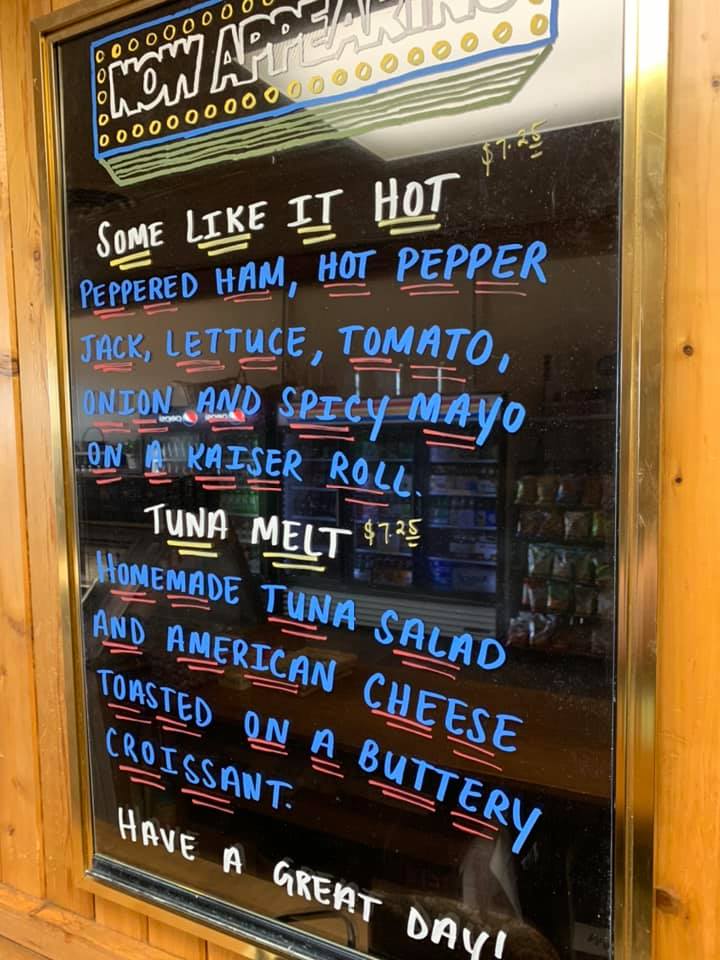 NOW APPEARING
$7.25
SOME LIKE IT HOT
PEPPERED HAM, HOT PEPPER
JACK, LETTUCE, TOMATO,
ONION AND SPICY MAYO
ON A KAISER ROLL.
TUNA MELT $7.25
HOMEMADE TUNA SALAD
AND AMERICAN CHEESE
TOASTED ON A BUTTERY
CROISSANT.
HAVE A GREAT DAY!